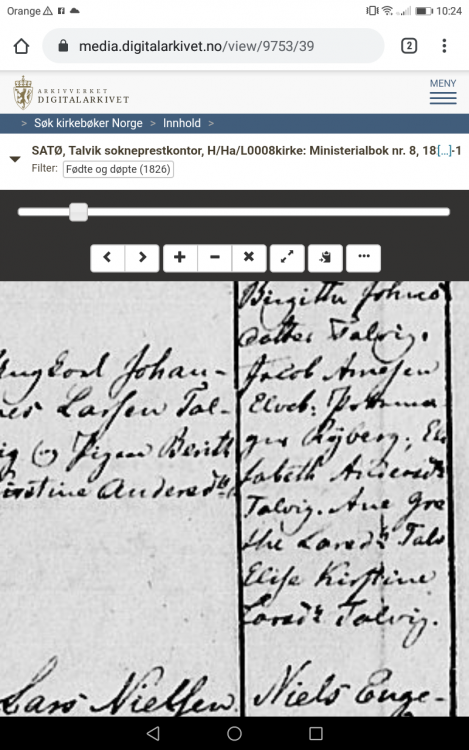 Orange 10:24
media.digitalarkivet.no/view/9753/39
2
ARKIVVERKET
DIGITALARKIVET
MENY
> Søk kirkebøker Norge > Innhold >
SATØ, Talvik sokneprestkontor, H/Ha/L0008kirke: Ministerialbok nr. 8, 18[...]-1
Filter: Fødte og døpte (1826)
Ungkarl Johan-
nes Larsen Tal-
vig og Pigen Beritt
Kirstine Andersdtr
Lars Nielsen
Birgitta Johns
datter Talvig.
Jacob Arnesen
Elveb:
Ryberg, Eli
sabeth Andersdtr
Talvig. Ane Gre
the Larsdtr Talv
Elise Kirstine
Larsdtr Talvig.
Niels Enge-